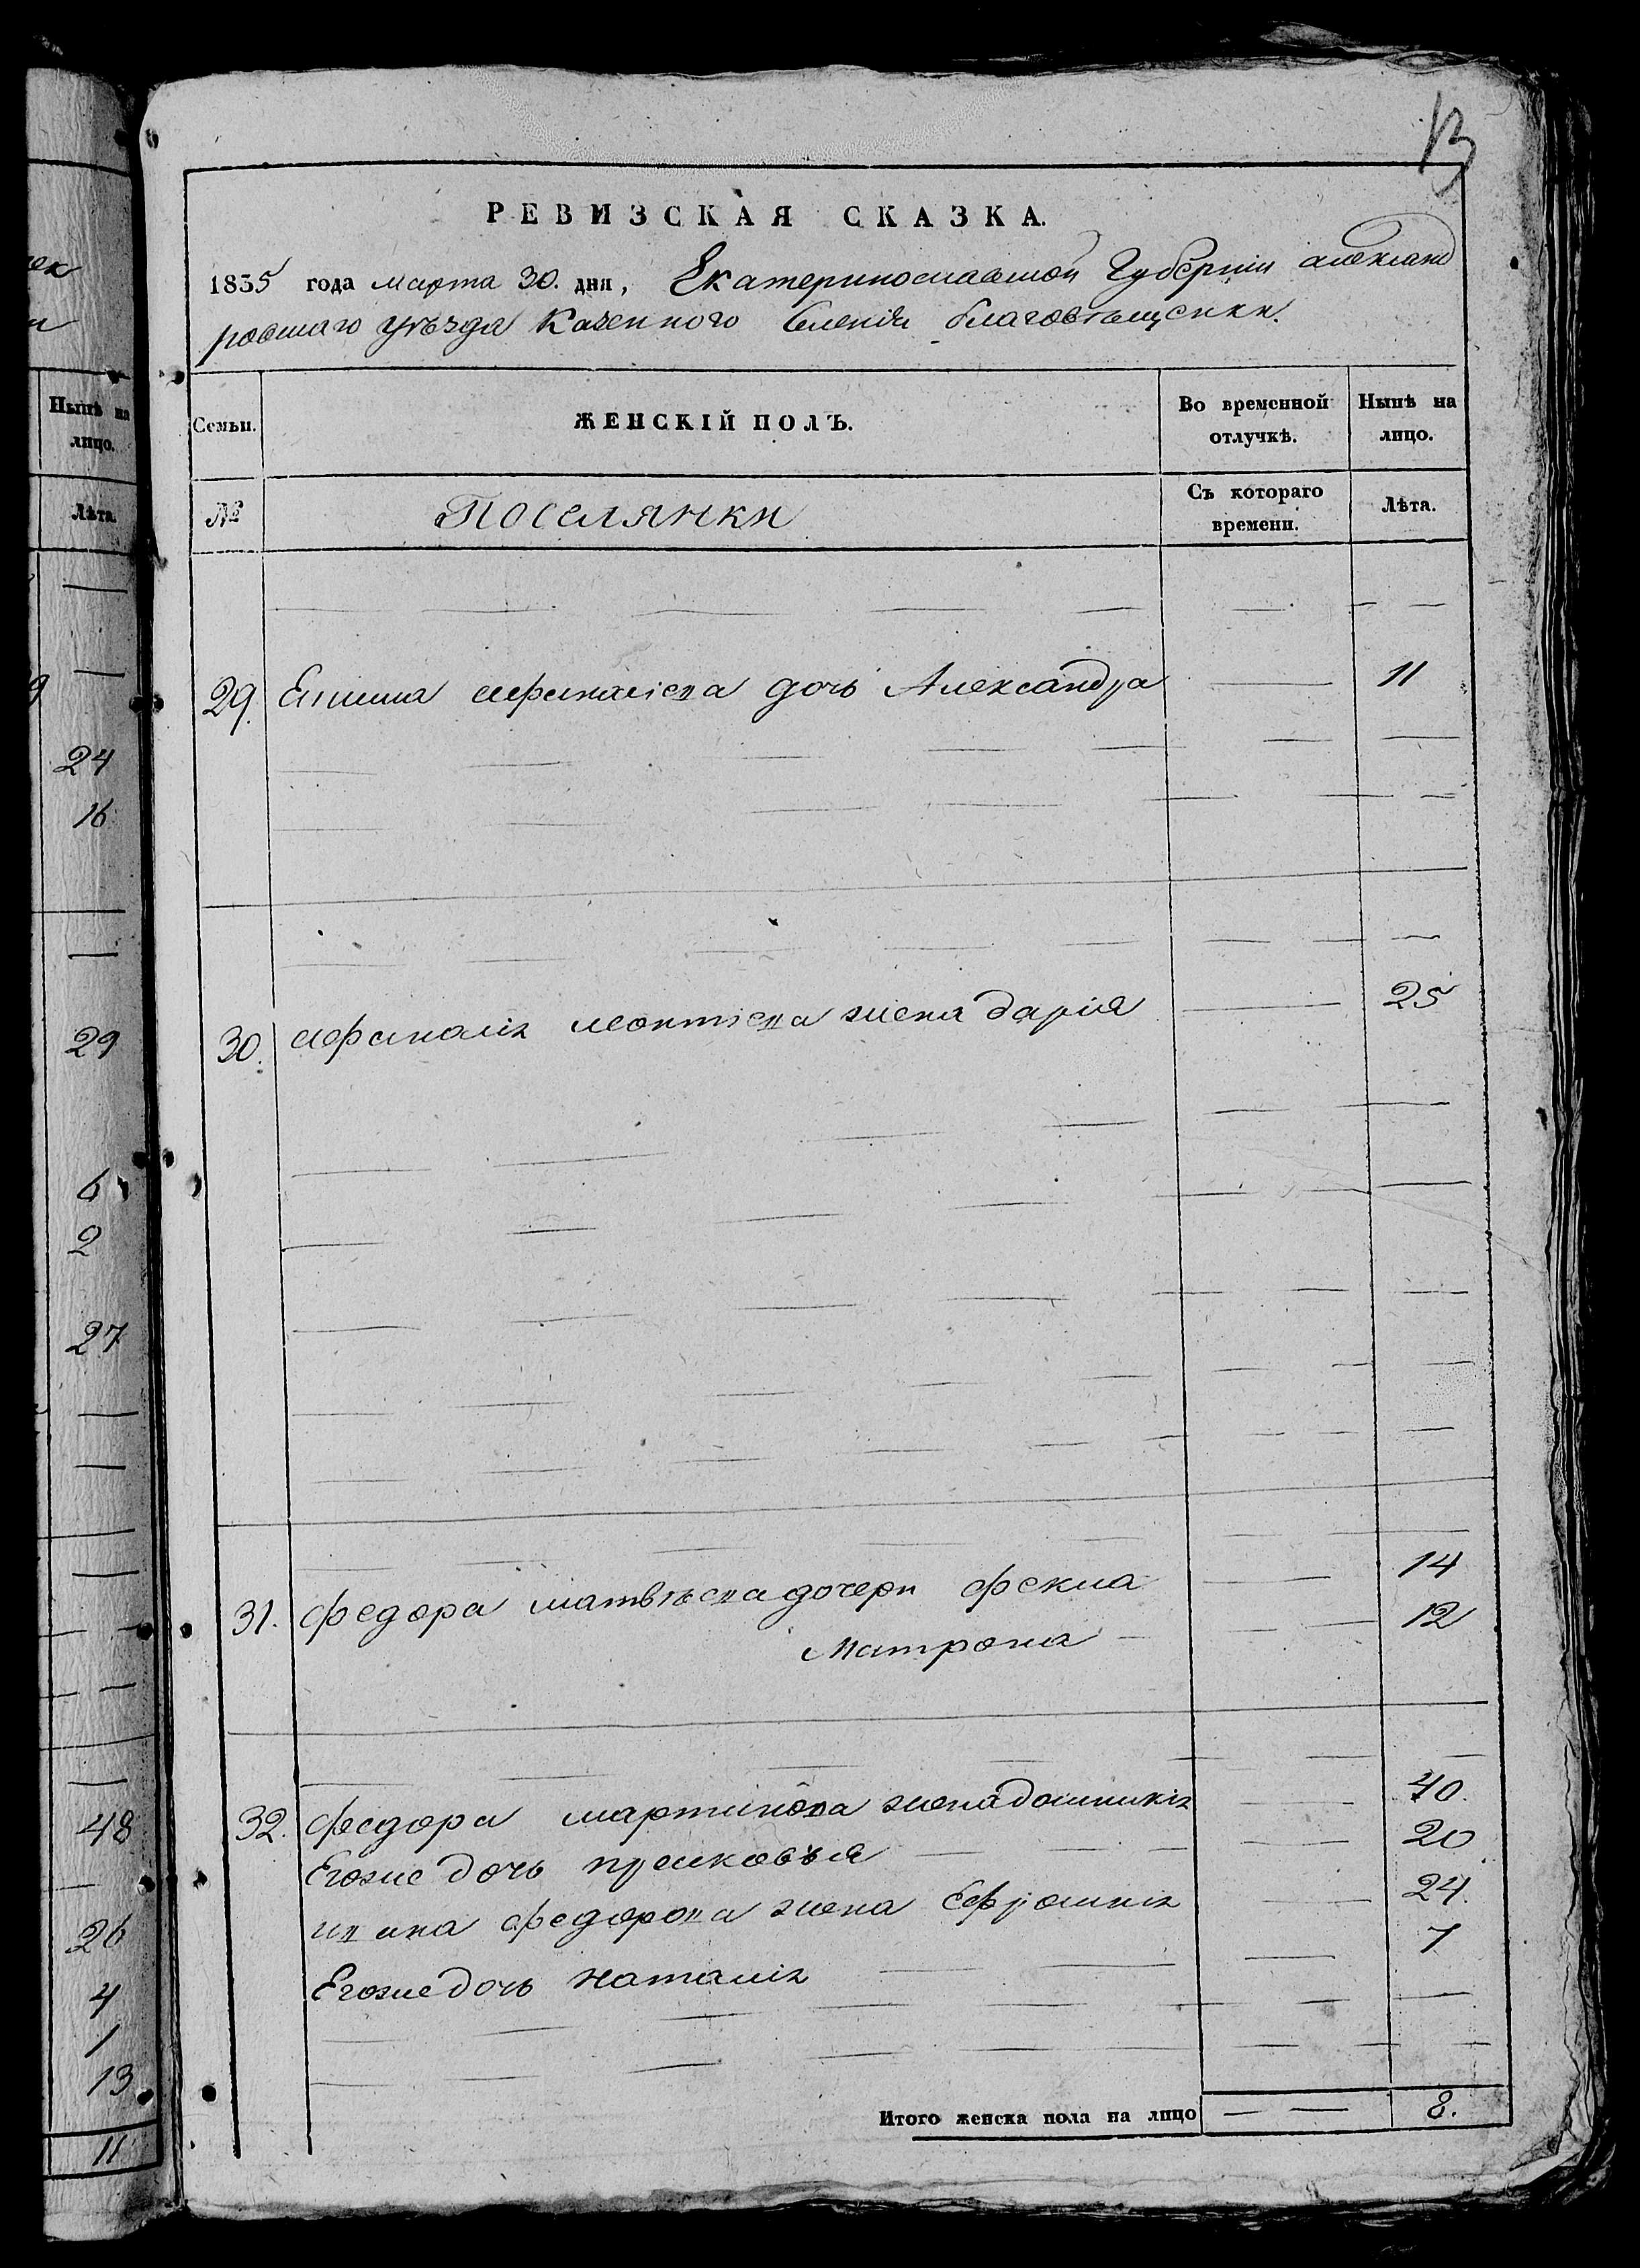 13
РЕВИЗСКАЯ СКАЗКА.
1835 года марта 30. дня, Екатеринославской Губерніи александ
ровскаго уѣзда Казенного Селенія благовѣщенки.
Семьи. ЖЕНСКІЙ ПОЛЪ. Во временной отлучкѣ. Нынѣ на лицо.
№ Поселянки Съ котораго времени. Лѣта.
29. афанасіева дочь Александра 11
30. леонтіева жена дарія 25
31. федора матвѣева дочери фекла 14
Матрона 12
32. федора мартинова жена домникія 40.
Егоже дочь прасковья 20
ивана федорова жена Ефросинія 24.
Егоже дочь наталія 7
Итого женска пола на лицо 8.
Нынѣ на
лицо.
Лѣта.
24
16
29
6
2
27
48
26
4
1
13
11